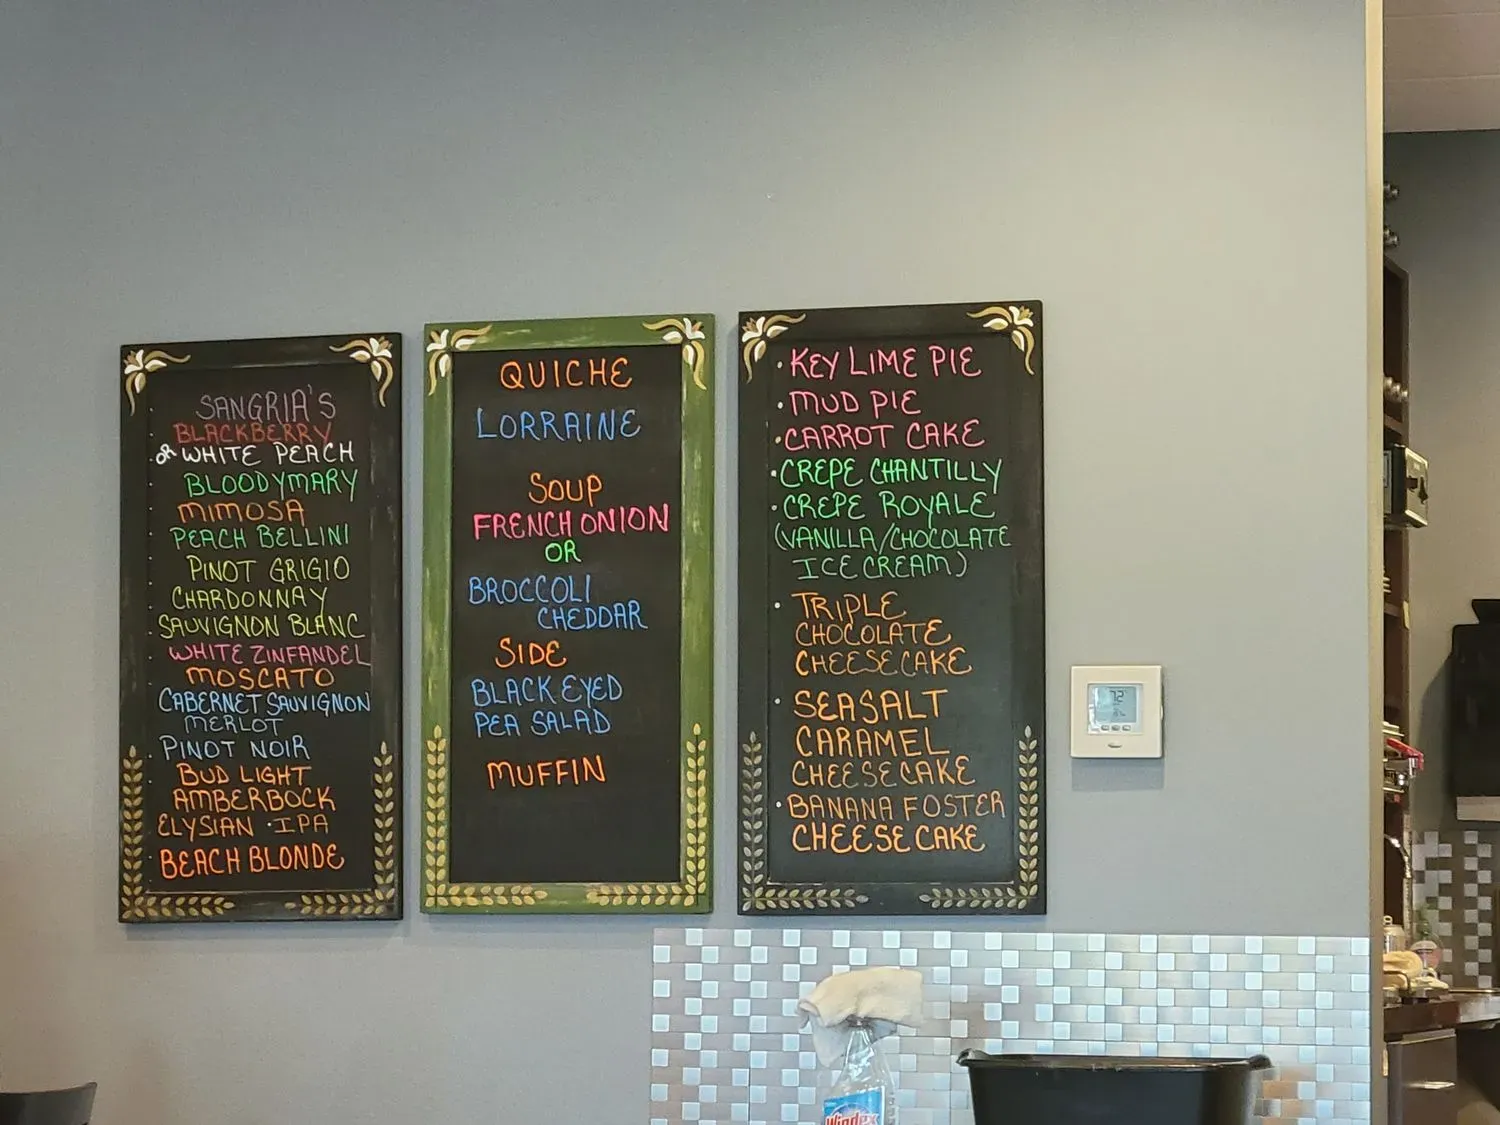 SANGRIA'S
BLACKBERRY
OR WHITE PEACH
BLOODYMARY
MIMOSA
PEACH BELLINI
PINOT GRIGIO
CHARDONNAY
SAUVIGNON BLANC
WHITE ZINFANDEL
MOSCATO
CABERNET SAUVIGNON
MERLOT
PINOT NOIR
BUD LIGHT
AMBERBOCK
ELYSIAN · IPA
BEACH BLONDE
QUICHE
LORRAINE
SOUP
FRENCH ONION
OR
BROCCOLI
CHEDDAR
SIDE
BLACK EYED
PEA SALAD
MUFFIN
· KEY LIME PIE
· MUD PIE
· CARROT CAKE
· CREPE CHANTILLY
· CREPE ROYALE
(VANILLA/CHOCOLATE
ICE CREAM)
· TRIPLE
CHOCOLATE
CHEESECAKE
· SEASALT
CARAMEL
CHEESECAKE
· BANANA FOSTER
CHEESE CAKE
72°
Windex